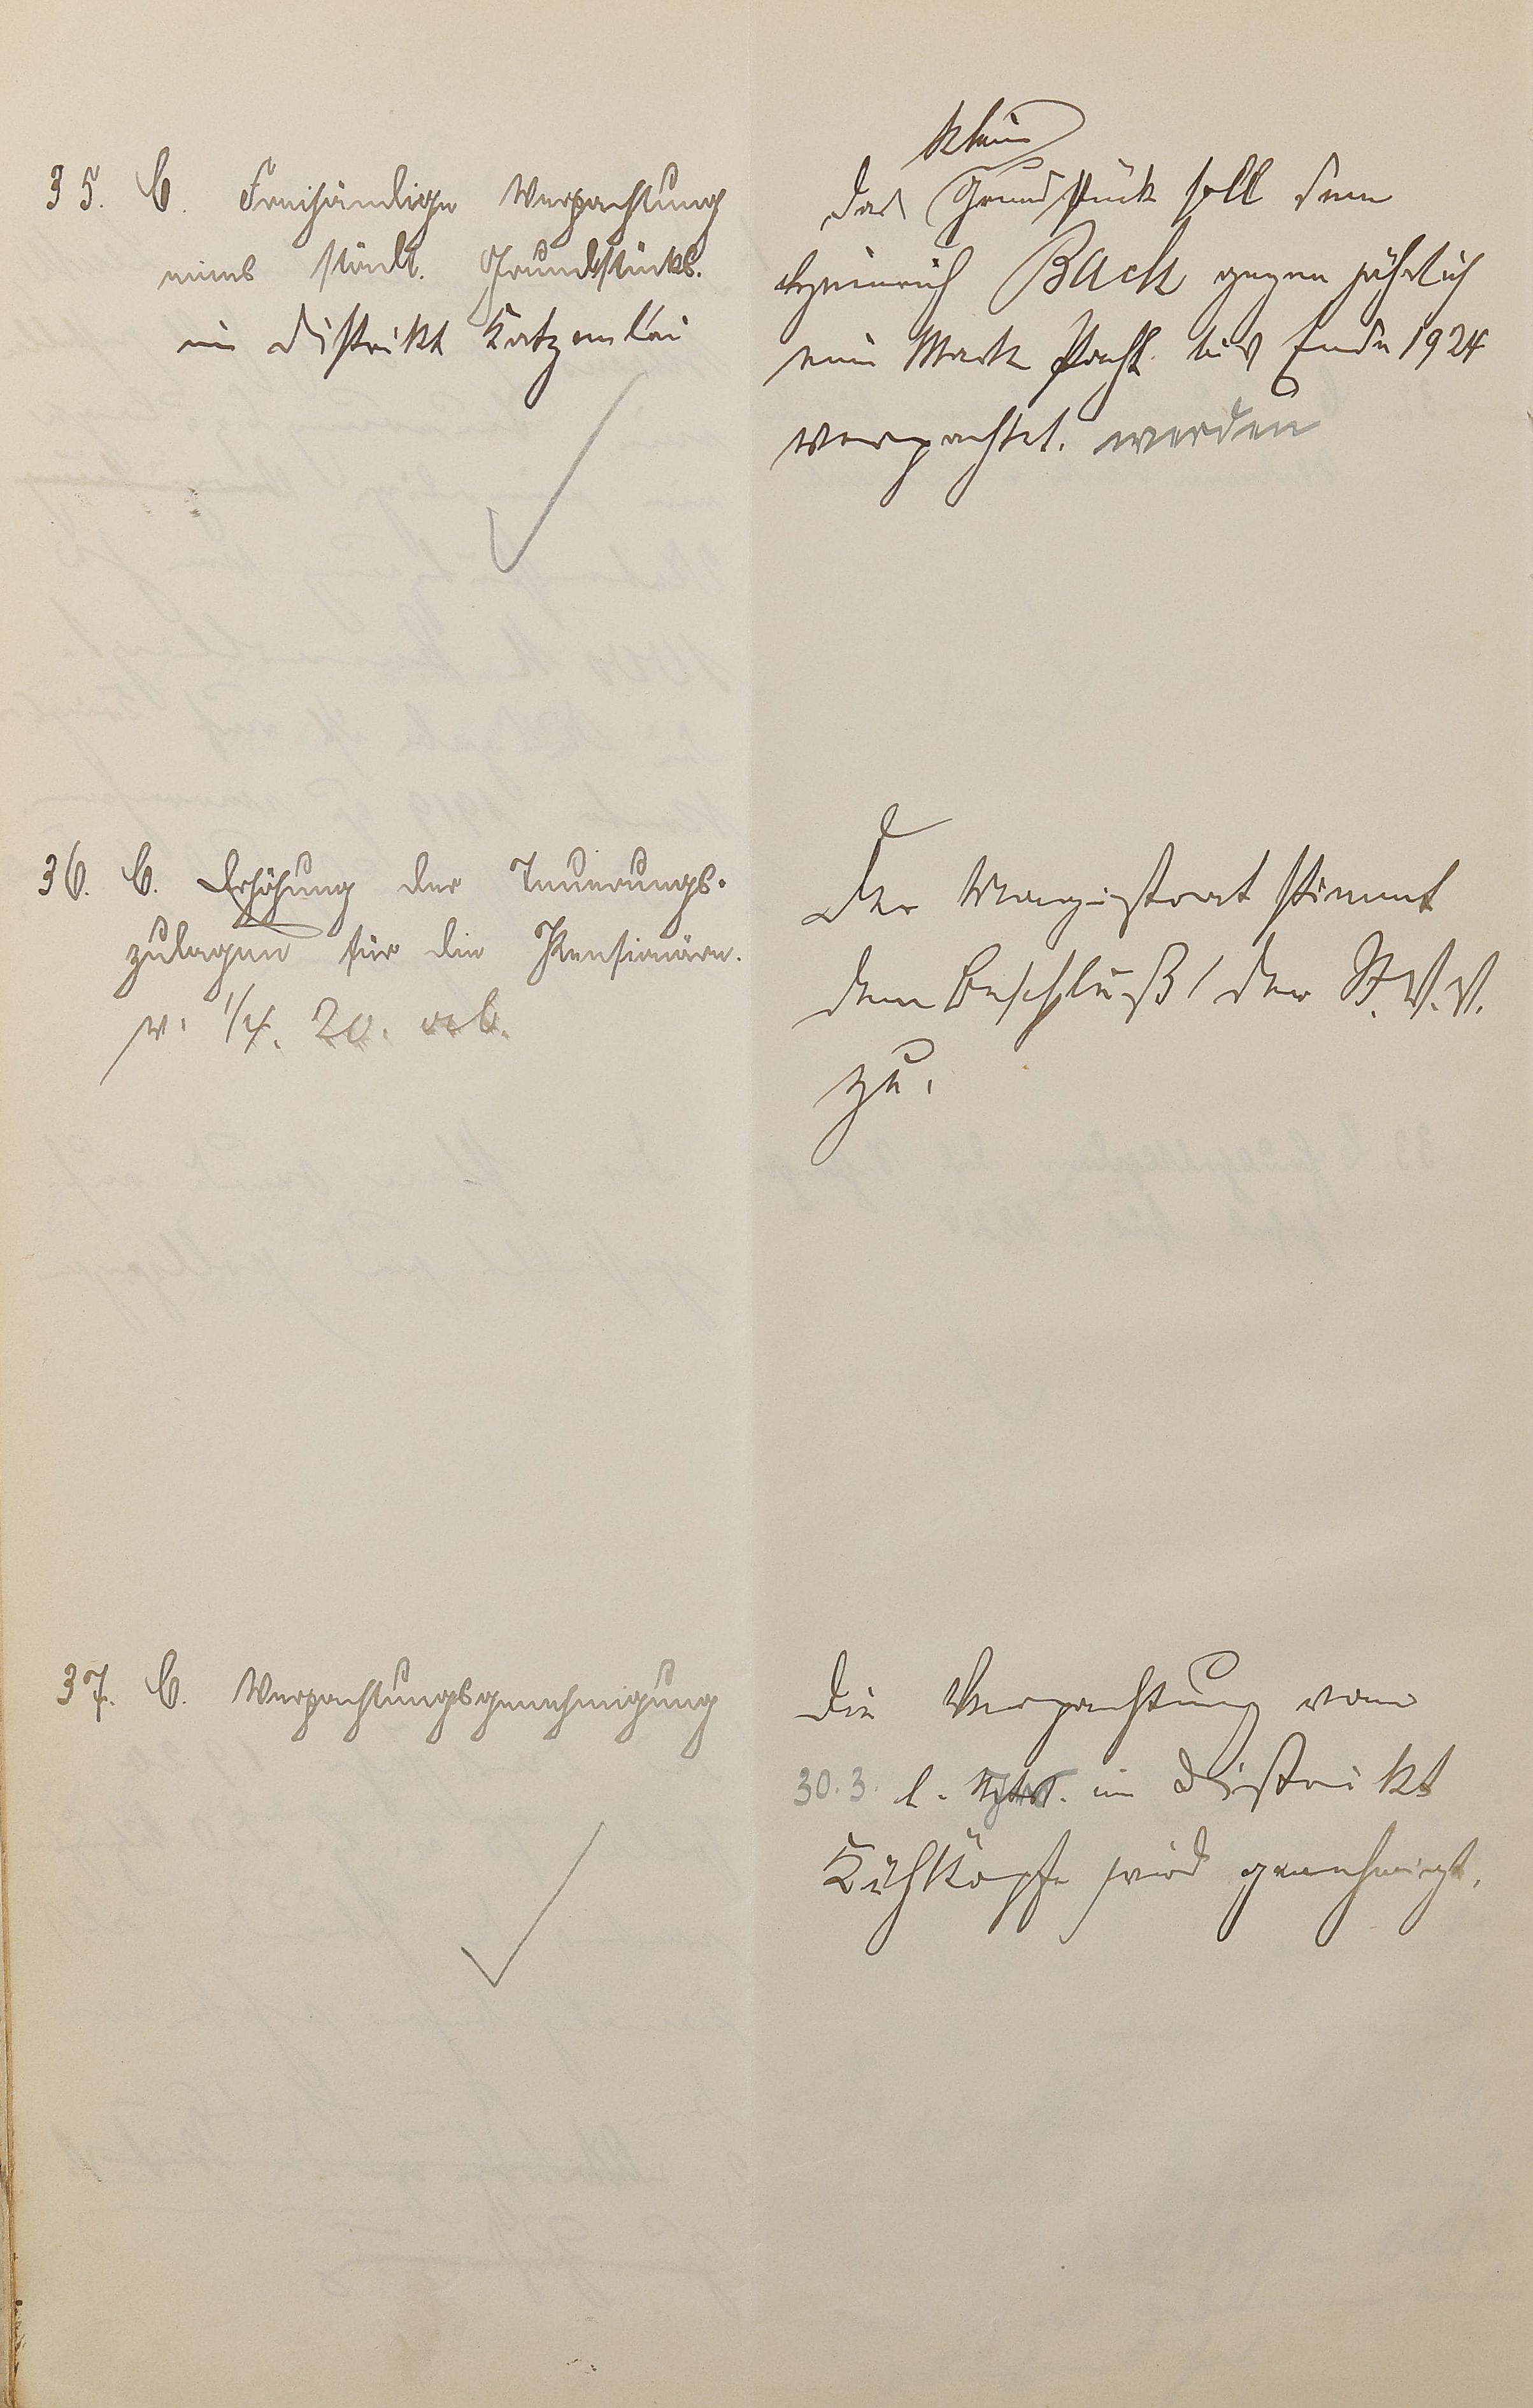 35. C. Freihändige Verpachtung
eines städt. Grundstücks.
im Distrikt Katzenlai
klein
Das Grundstück soll dem
Heinrich Back gegen jährlich
eine Mark Pacht bis Ende 1924
verpachtet. werden
36. C. Erhöhung der Teuerungs-
zulagen für die Pensionäre.
v. 1/4. 20. ab.
Der Magistrat stimmt
dem Beschluß der St. V. V.
zu.
37. C. Verpachtungsgenehmigung
Die Verpachtung vom
30.3. l. im Distrikt
Kühköpfe wird genehmigt.